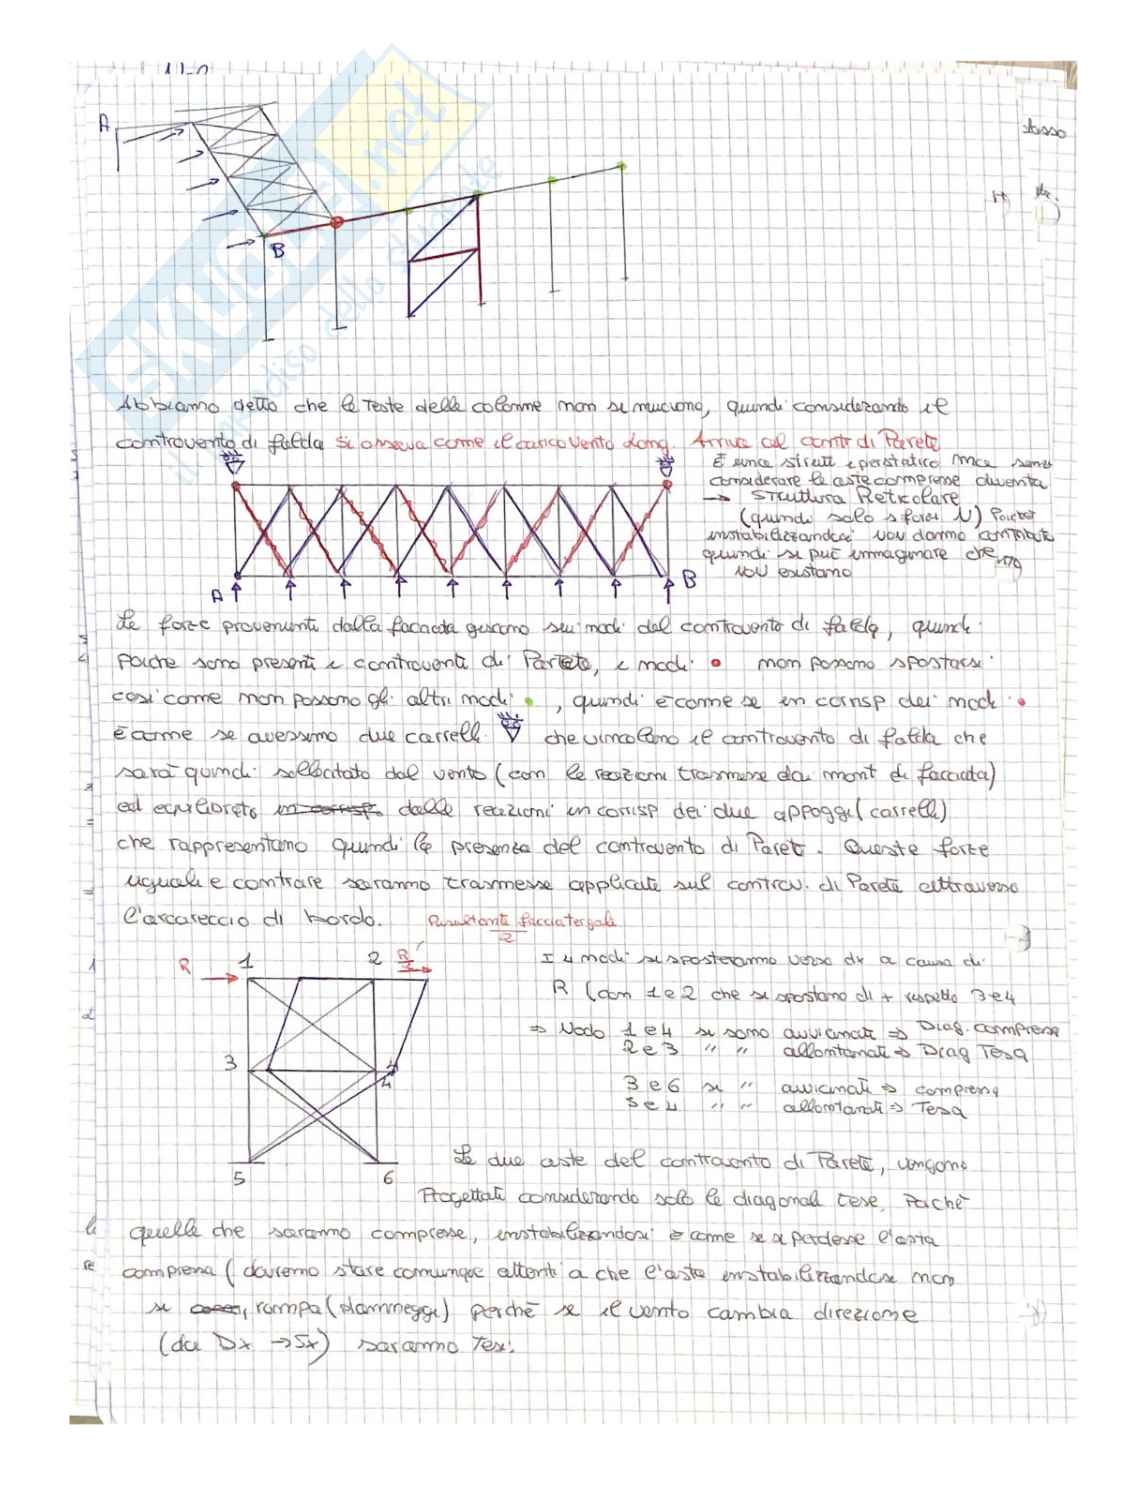 A
SKUOLA.net
il paradiso dello studente
B
Abbiamo detto che le Teste delle colonne non si muovono, quindi considerando il
controvento di falda si osserva come il carico vento Long. Arriva al contr di Parete
È una strutt iperstatica ma senza
considerare le aste compresse diventa
→ Struttura Reticolare
(quindi solo sforzi N) Poiché
instabilizzandosi NON danno contributo
quindi si può immaginare che
NON esistano
A
B
Le forze provenienti dalla facciata giacciono sui nodi del controvento di falda, quindi
poiche sono presenti i controventi di Parete, i nodi • non possono spostarsi
così come non possono gli altri nodi •, quindi è come se in corrisp dei nodi •
È come se avessimo due carrelli che vincolano il controvento di falda che
sarà quindi sollecitato dal vento (con le reazioni trasmesse dai mont di facciata)
ed equilibrato in corrisp. dalle reazioni in corrisp dei due appoggi (carrelli)
che rappresentano quindi la presenza del controvento di Parete. Queste forze
uguali e contrarie saranno trasmesse applicate sul controv. di Parete attraverso
l'arcareccio di bordo.
Risultante facciata
2
R
1
2
R
3
4
5
6
I 4 nodi si sposteranno verso dx a causa di
R (con 1 e 2 che si spostano di + rispetto 3 e 4
⇒ Nodo 1 e 4 si sono avvicinati ⇒ Diag. compressa
2 e 3 " " allontanati ⇒ Diag Tesa
3 e 6 si " avvicinati ⇒ compressa
5 e 4 " " allontanati ⇒ Tesa
Le due aste del controvento di Parete, vengono
Progettate considerando solo le diagonali tese, Poichè
quelle che saranno compresse, instabilizzandosi è come se si perdesse l'asta
compressa (dovremo stare comunque attenti a che l'asta instabilizzandosi non
si rompa (danneggi) perchè se il vento cambia direzione
(da Dx → Sx) saranno Tesi.